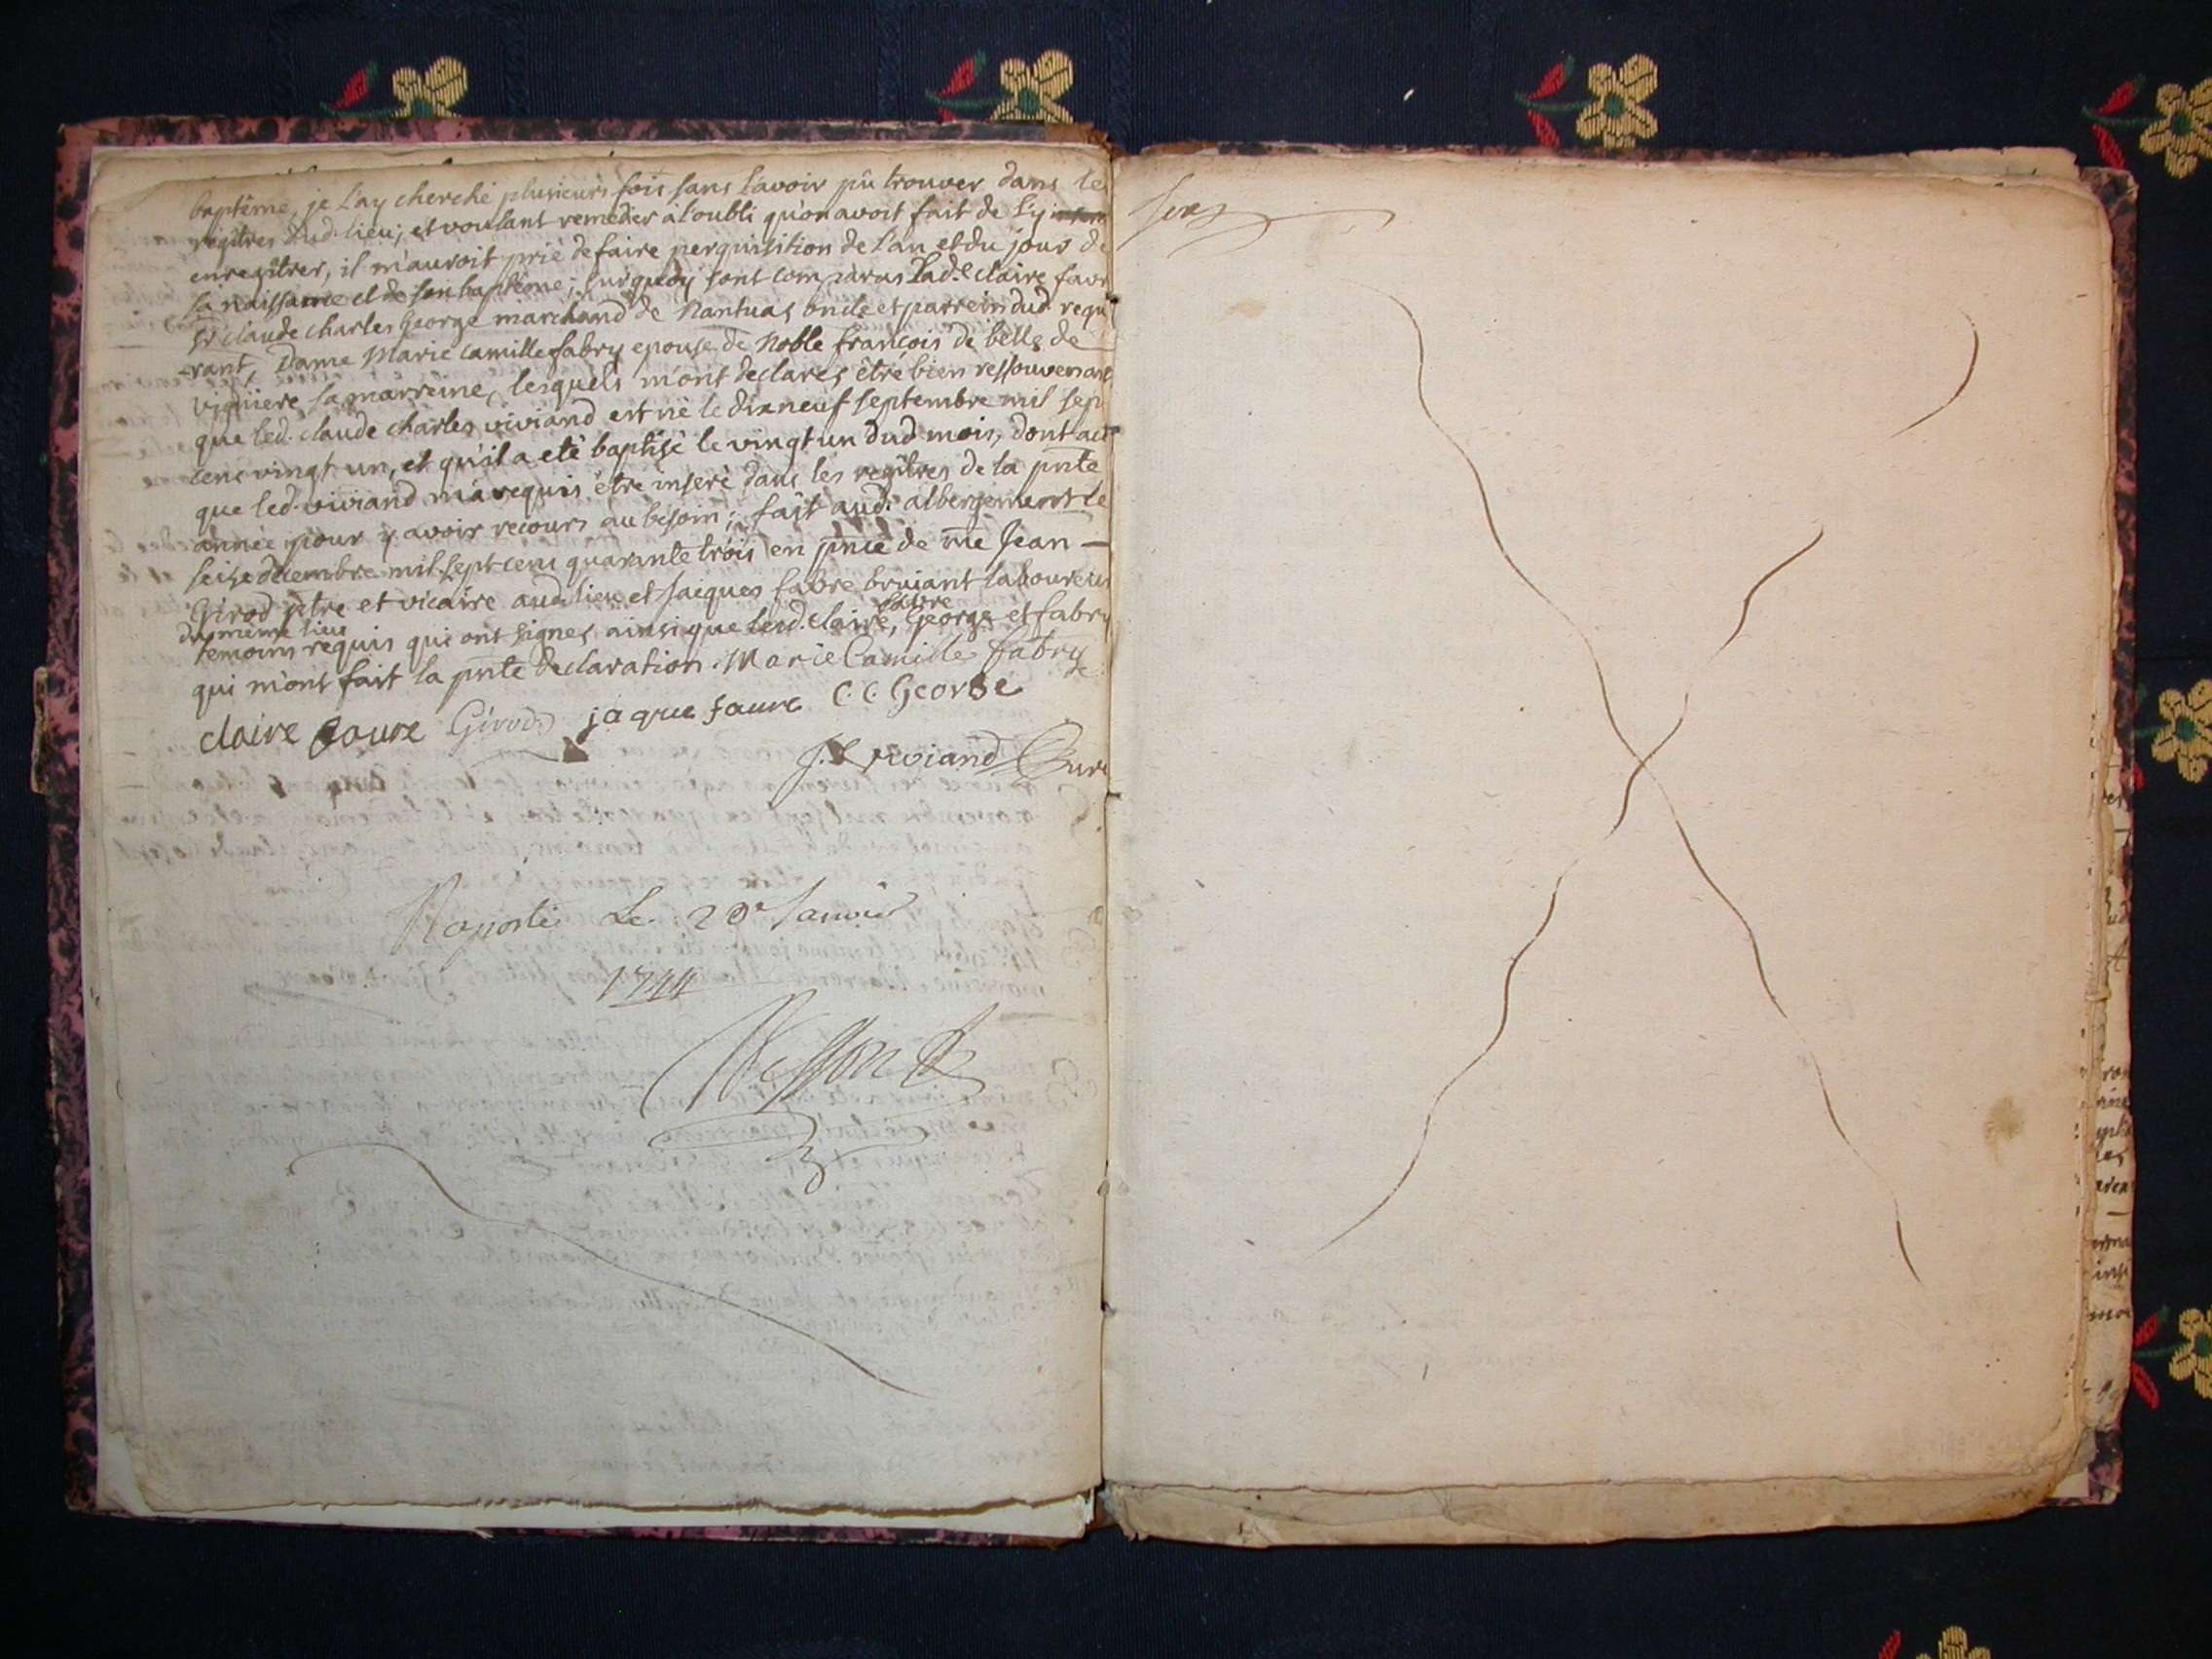 baptême, je l'ay cherché plusieurs fois sans l'avoir pû trouver dans les
regîtres dud. lieu; et voulant remedier à l'oubli qu'on avoit fait de l'y
enregîtrer, il m'auroit prié de faire perquisition de l'an et du jour de
sa naissance et de son baptême; surquoy sont comparus lad.e claire favr
Sr claude charles George marchand de Nantuas oncle et parrein dud. requ
-rant, Dame Marie camille fabry epouse de Noble françois de belle de
vigniere sa marreine, lesquels m'ont declarés être bien ressouvenans
que led. claude charles viviand est né le dixneuf septembre mil sep
cens vingt un, et qu'il a eté baptisé le vingt un dud mois, dont act
que led. viviand m'a requis être inseré dans les regîtres de la pnte
année pour y avoir recours au besoin; fait aud. albergement le
seise decembre mil sept cens quarante trois en pnce de me Jean —
Girod ptre et vicaire aud. lieu et Jacques favre bruiant laboureur
du même lieu favre
temoins requis qui ont signés ainsi que lesd. claire, George et fabry
qui m'ont fait la pnte declaration. Marie Camille fabry
claire faure Girod jaque faure C. C. George
viviand Curé
Raporté Le. 20e Janvier
1744